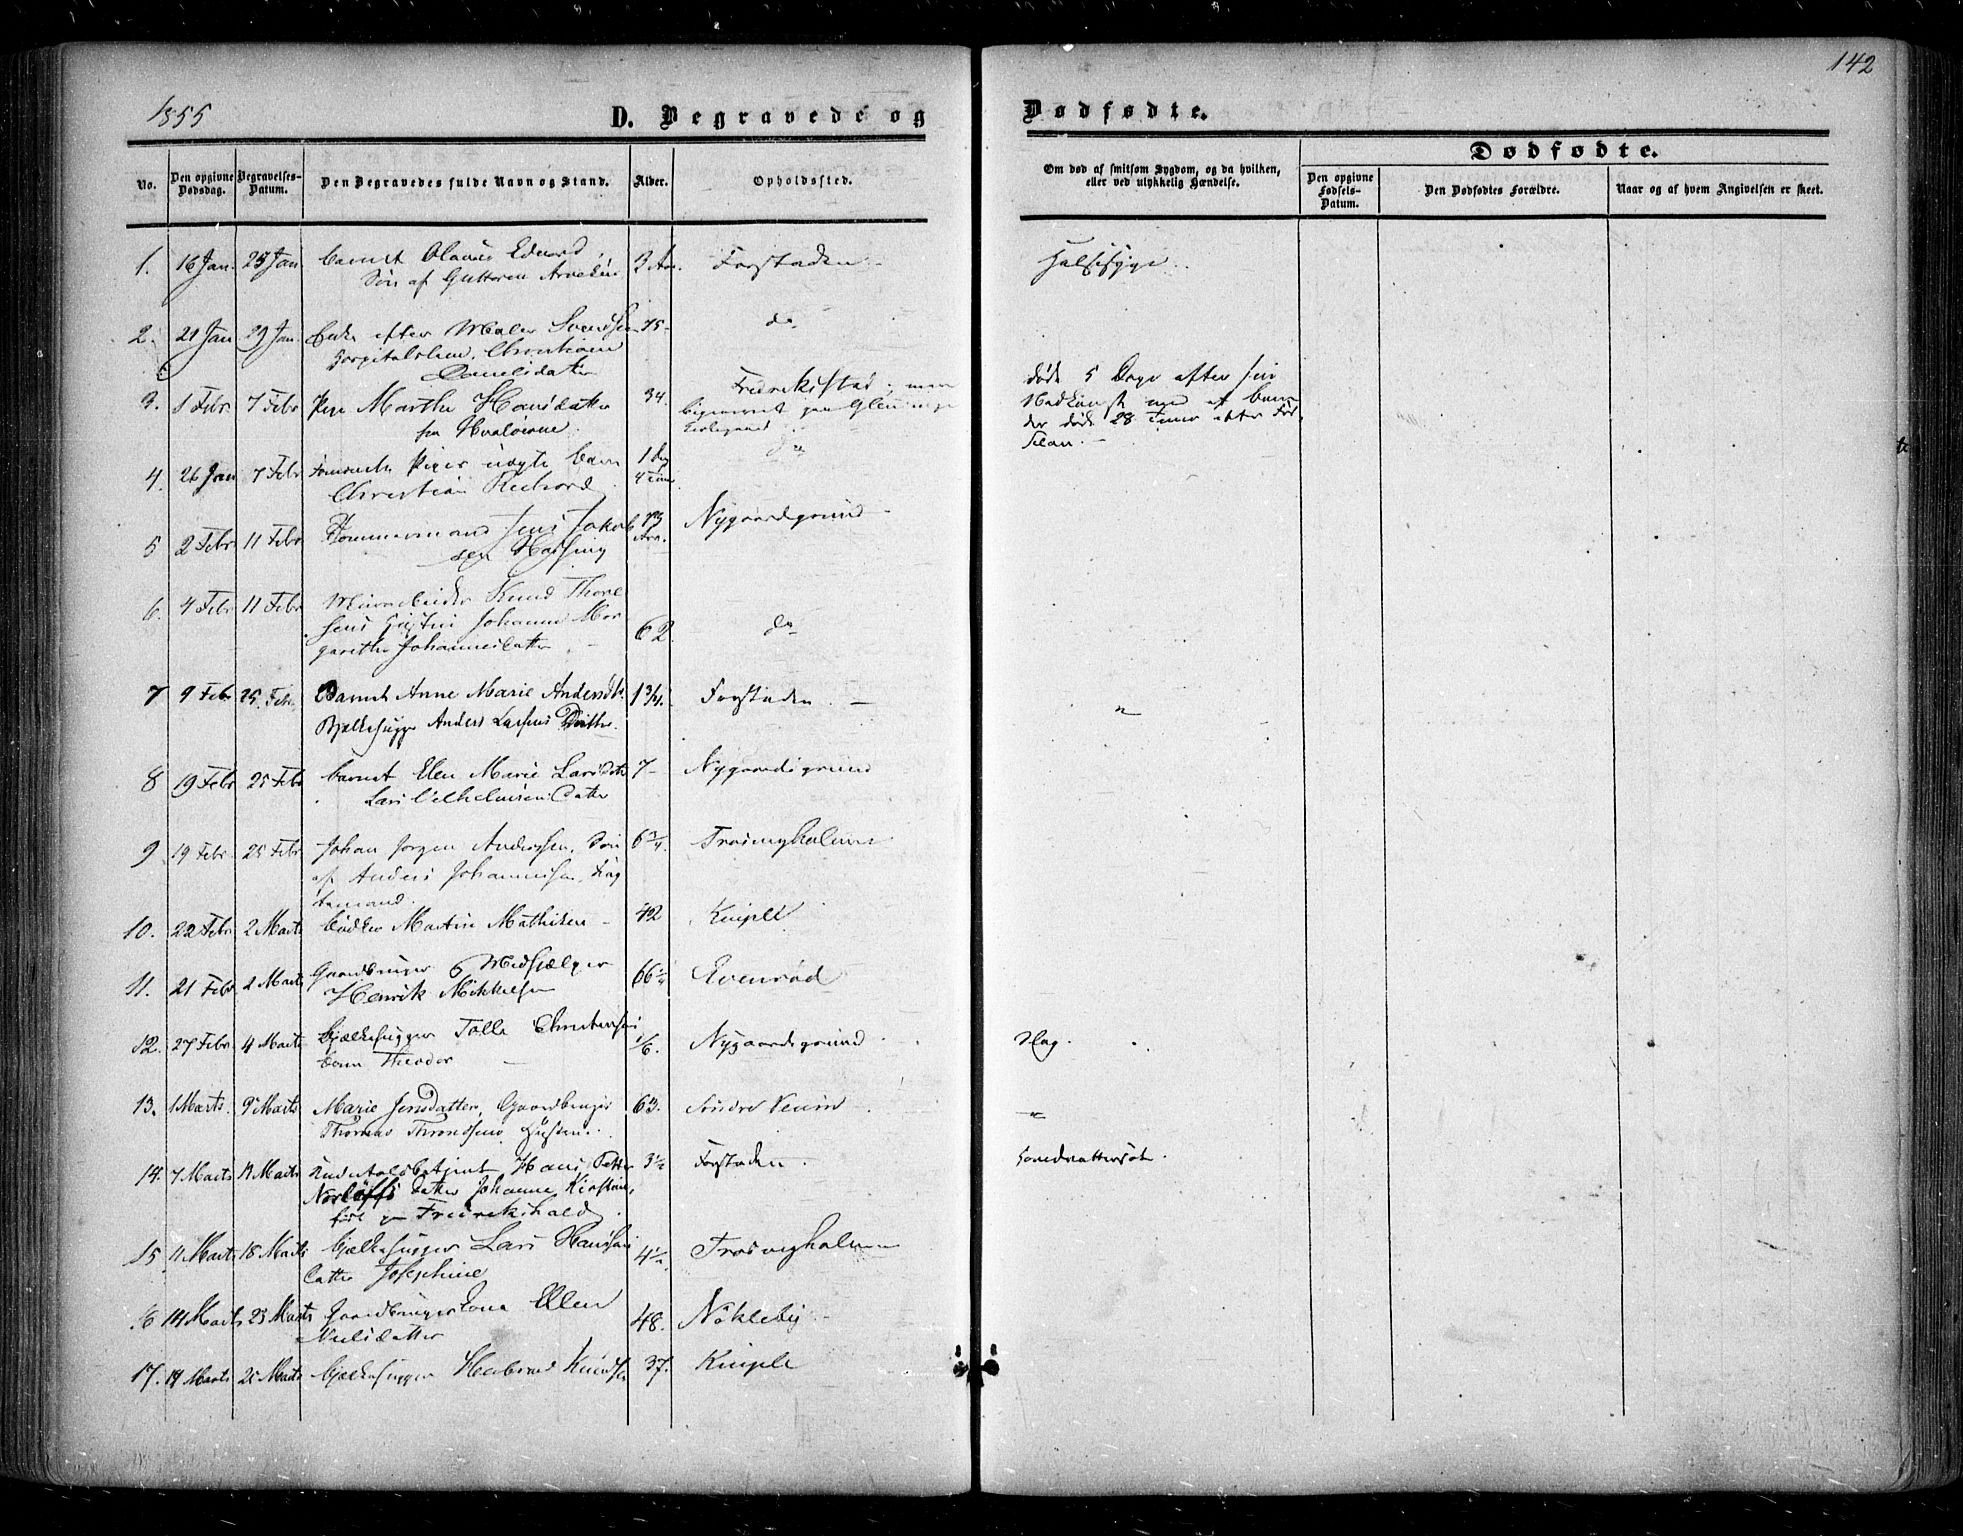 142
1855
D. Begravede og Dødfødte.
No.
Den opgivne Dødsdag.
Begravelses-Datum.
Den Begravedes fulde Navn og Stand.
Alder.
Opholdssted.
Om død af smitsom Sygdom, og da hvilken,
eller ved ulykkelig Hændelse.
Dødfødte.
Den opgivne Fødsels-Datum.
Den Dødfødtes Forældre.
Naar og af hvem Angivelsen er skeet.
1. 16 Jan. 25 Jan barnet Olaves Edvard, 2 Aar. Forstaden Halssyge
Søn af Guttorm
2. 21 Jan 29 Jan Enke efter Maler Svendsen 75 do
Hospitalslem, Christiane
Danielsdatter
3. 1 Febr. 7 Febr Pige Marthe Hansdatter 34. Fredrikstad, men
fra Hvaløerne. begravet paa Glemminge
Kirkegaard
døde 5 Dage efter sin
Nedkomst med et barn
der døde 28 Timer efter Fød
selen.
4. 26 Jan 7 Febr Piges uægte barn 1 Dag do
Christian Richard 4 Timer
5 2 Febr 11 Febr Tømmermand Jens Jakob 73 Nygaardsgrund
sen Aar.
6. 4 Febr 11 Febr Knud Thore
sens Hustru Johanne Mar
garethe Johannesdatter 62. do
7 9 Febr 25. Febr. Barnet Anne Marie Andersdtr. 1 3/4. Forstaden "
Bjelkehugger Anders Larsens Datter.
8 19 Febr 25 Febr barnet Elen Marie Larsdatter 7 Nygaardsgrund
Lars Vilhelmsens Datter
9 19 Febr. 25 Febr Johan Jørgen Anderssen, Søn 6 3/4. Trosvigholmen
af Anders Johannessen, Lag
temand.
10. 22 Febr 2 Marts bødker Martin Mathisen 42 Kniple
11. 21 Febr 2 Marts Gaardbruger & Medhjælper 66 1/4 Evenrød
Henrik Mikkelsen
12. 27 Febr 4 Marts bjælkehugger Tolle Christensens 1/6. Nygaardsgrund Slag.
barn Theodor
13. 1 Marts. 9 Marts Marie Jensdatter, Gaardbruger 63. Søndre Veum "
Thomas Throndsens Hustru.
14. 7 Marts 12 Marts Hans Petter 3 1/2 Forstaden.
Norløffs Datter Johanne Kirstine,
født paa Fredrikshald.
15 11 Marts 18 Marts bjælkehugger Lars Hansens 4 1/2. Trosvigholmen
Datter Josephine
16 14 Marts 25 Marts Gaardbruger Kone Ellen 48. Nökleby
Nielsdatter
17. 19 Marts 25 Marts bjælkehugger Halvord Knudsen 37. Kniple